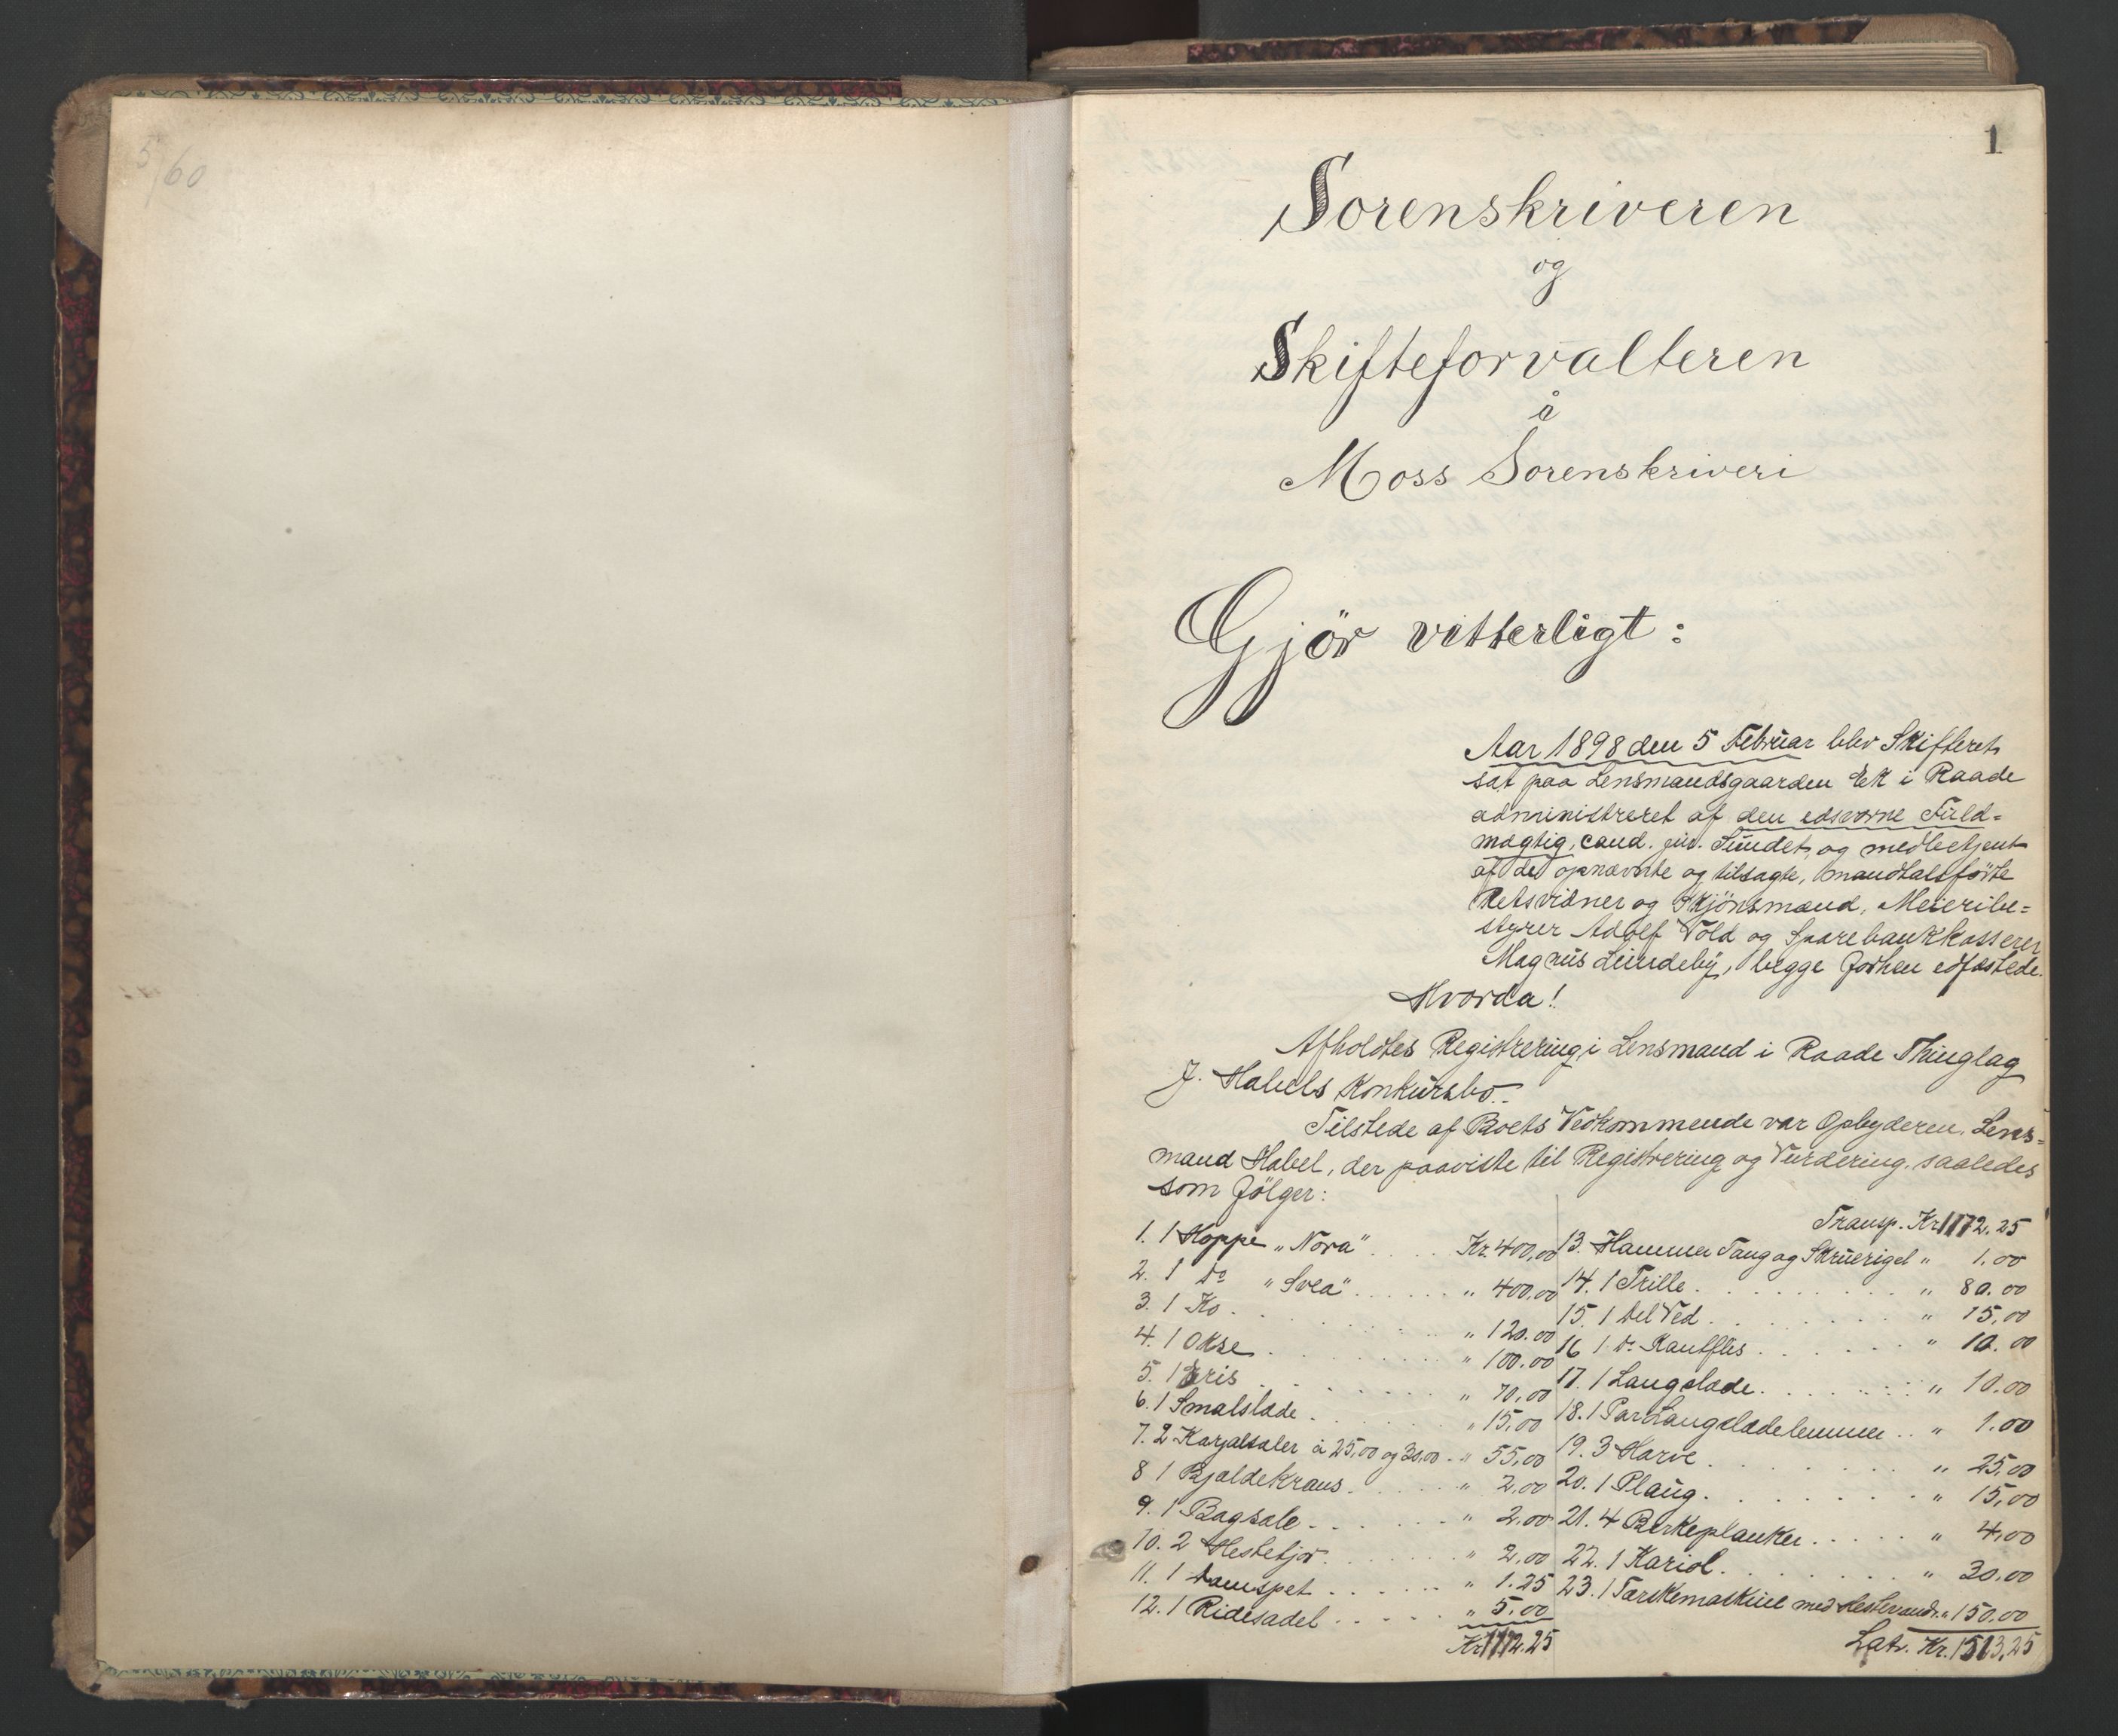 5/60
1
Sorenskriveren
og
Skifteforvalteren
i
Moss Sorenskriveri
Gjör vitterligt:
Aar 1898 den 5 Februar blev Skifteret
sat paa Lensmandsgaarden Ek i Raade
administreret af den edsvorne Fuld=
mægtig, cand. jur. Sundet, og medbetjent
af de opnævnte og tilsagte, mandtalsförte
Retsvidner og Skjönsmænd, Meieribe=
styrer Adolf Vold og Sparebankkasserer
Magnus Lundeby, begge forhen edfæstede.
Hvorda!
Afholdtes Registrering i Lensmand i Raade Thinglag
J. Habels Konkursbo.
Tilstede af Boets Vedkommende var Opbyderen, Lens=
mand Habel, der paaviste til Registrering og Vurdering, saaledes
som fölger:
1. 1 Hoppe „Nora" . . . . Kr. 400,00
2. 1 do „Svea" . . . . . . " 400,00
3. 1 Ko . . . . . . . " 120.00
4. 1 Okse . . . . . . . " 100.00
5. 1 Gris . . . . . . . " 70,00
6. 1 Smalslæde . . . . . . " 15,00
7. 2 Karjolsæler à 25,00 og 30,00 . " 55,00
8 1 Bjældekrans . . . . . " 2,00
9. 1 Bagsæle . . . . . . " 2,00
10. 2 Hestetjor . . . . . . " 2,00
11. 1 Domspet . . . . . " 1.25
12. 1 Ridesadel . . . . . " 5.00
Kr 1172.25
Transp. Kr 1172.25
13. Hammer Tang og Skruerigel " 1.00
14. 1 Trille . . . . . . . " 80.00
15. 1 Del Ved . . . . . . . " 15,00
16 1 do Kantflis . . . . . . " 10.00
17. 1 Langslæde . . . . . . " 10.00
18. 1 Par Langslædelemmer . . " 1.00
19. 3 Harve . . . . . . . " 25,00
20. 1 Plaug . . . . . . . " 15,00
21. 4 Berkeplanker . . . . . " 4,00
22. 1 Kariol . . . . . . . " 30.00
23. 1 Tærskemaskine med Hestevandr. " 150.00
Latr. Kr. 1513,25